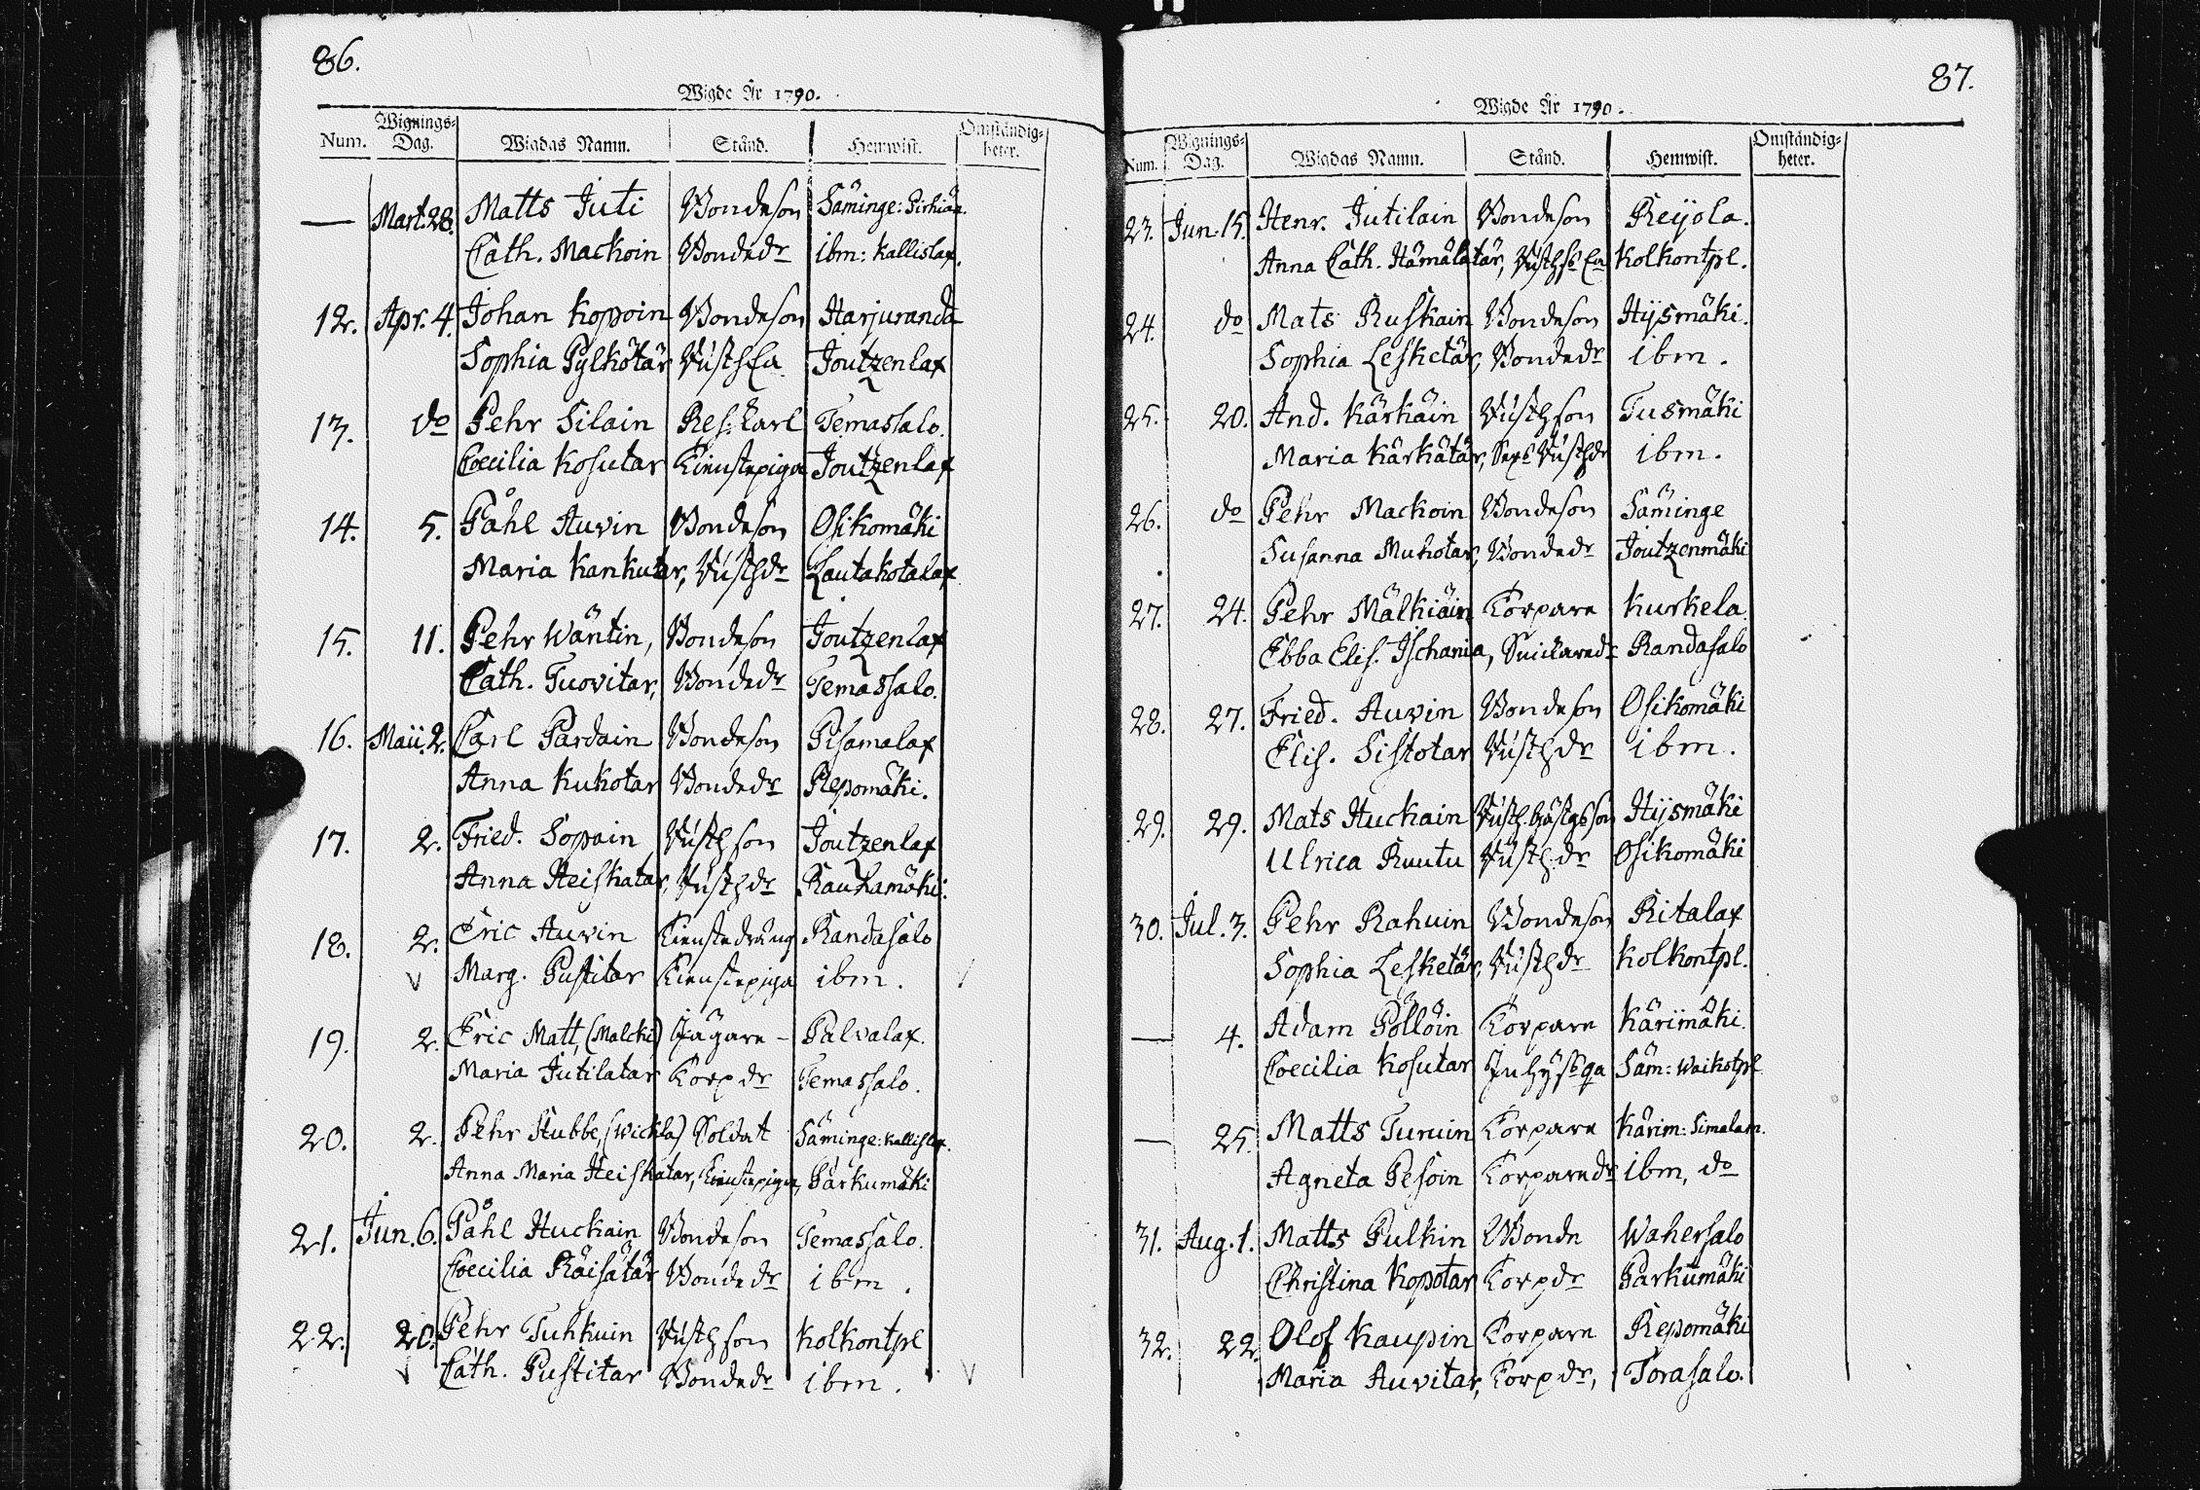 86.
Wigde År 1790.
Num. Wignings-Dag. Wigdas Namn. Stånd. Hemwist. Omständig-heter.
— Mart. 28. Matts Juti Bondeson Säminge: Pirhiän.
Cath. Mackoin Bondedr ibm: Kallislax.
12. Apr. 4. Johan Kopoin Bondeson Harjuranda
Sophia Pylkötär Joutzenlax
13. do Pehr Silain Temassalo.
Coecilia Kosutar Tienstepiga Joutzenlax
14. 5. Påhl Auvin Bondeson Osikomäki
Maria Kankutar, Lautakotalax
15. 11. Pehr Wäntin, Bondeson Joutzenlax
Cath. Tuovitar, Bondedr Temassalo.
16. Maii. 2. Carl Pardain Bondeson Pisamalax
Anna Kukotar Bondedr Repomäki.
17. 2. Fried. Sopain Joutzenlax
Anna Heiskatar, Rauhamäki.
18. 2. Eric Auvin Tienstedräng Randasalo
Marg. Pustitar Tienstepiga ibm.
19. 2. Eric Matt, (Malcki) Jägare - Palvalax.
Maria Jutilatar Torpdr Temassalo.
20. 2. Pehr Stubbe, (Wickla) Soldat Säminge: Kallislax.
Anna Maria Heiskatar, Tienstepiga, Parkumäki
21. Jun. 6. Påhl Huckain Bondeson Temassalo.
Coecilia Räisätär Bondedr ibm.
22. 20. Pehr Tuhkuin Kolkontpl
Cath. Pustitar Bondedr ibm.
87.
Wigde År 1790.
Num. Wignings-Dag. Wigdas Namn. Stånd. Hemwist. Omständig-heter.
23. Jun. 15. Henr. Jutilain Bondeson Reijola.
Anna Cath. Hämälatär, Kolkontpl.
24. do Mats Ruskain Bondeson Hijsmäki.
Sophia Lesketär, Bondedr ibm.
25. 20. And. Kärkäin Tusmäki
Maria Kärkätär, ibm.
26. do Pehr Mackoin Bondeson Säminge
Susanna Muhotar, Bondedr Joutzenmäki
27. 24. Pehr Mälkiäin Torpare Kurkela.
Ebba Elis. Ischania, Randasalo
28. 27. Fried. Auvin Bondeson Osikomäki
Elis. Sistotar ibm.
29. 29. Mats Huckain Hijsmäki
Ulrica Ruutu Osikomäki
30. Jul. 3. Pehr Rahuin Bondeson Ritalax
Sophia Lesketär, Kolkontpl.
— 4. Adam Pöllöin Torpare Kärimäki.
Coecilia Kosutar Säm: Waikotpl
— 25. Matts Turuin Torpare Kärim: Simalam.
Agneta Pesoin Torparedr ibm, do
31. Aug. 1. Matts Pulkin Bonde Wahersalo
Christina Kopotar Torpdr Parkumäki
32. 22. Olof Kaupin Torpare Repomäki
Maria Auvitar, Torpdr, Torasalo.